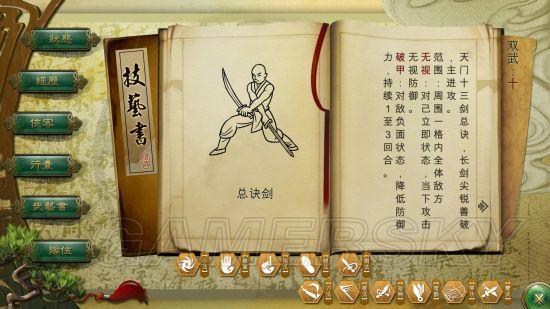 狀態
經歷
俠客
行囊
武藝書
隊伍
技藝書
总诀剑
双武:十
天门十三剑总诀,长剑尖锐善破
,主进攻。
范围:周围一格内全体敌方
无视:对己立即状态,当下攻击
无视防御。
破甲:对敌负面状态,降低防御
力,持续1至3回合。
GAMERSKY